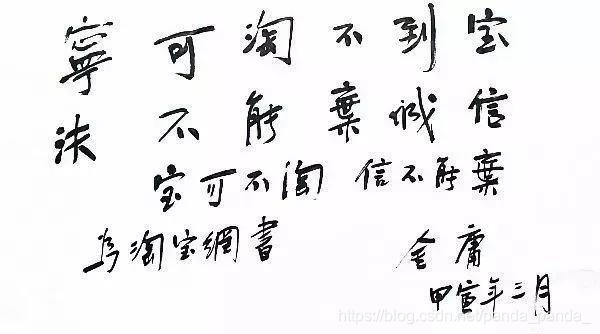 寧可淘不到宝
决不能棄诚信
宝可不淘 信不能棄
为淘宝網書 金庸
甲寅年三月
https://blog.csdn.net/penda_panda_